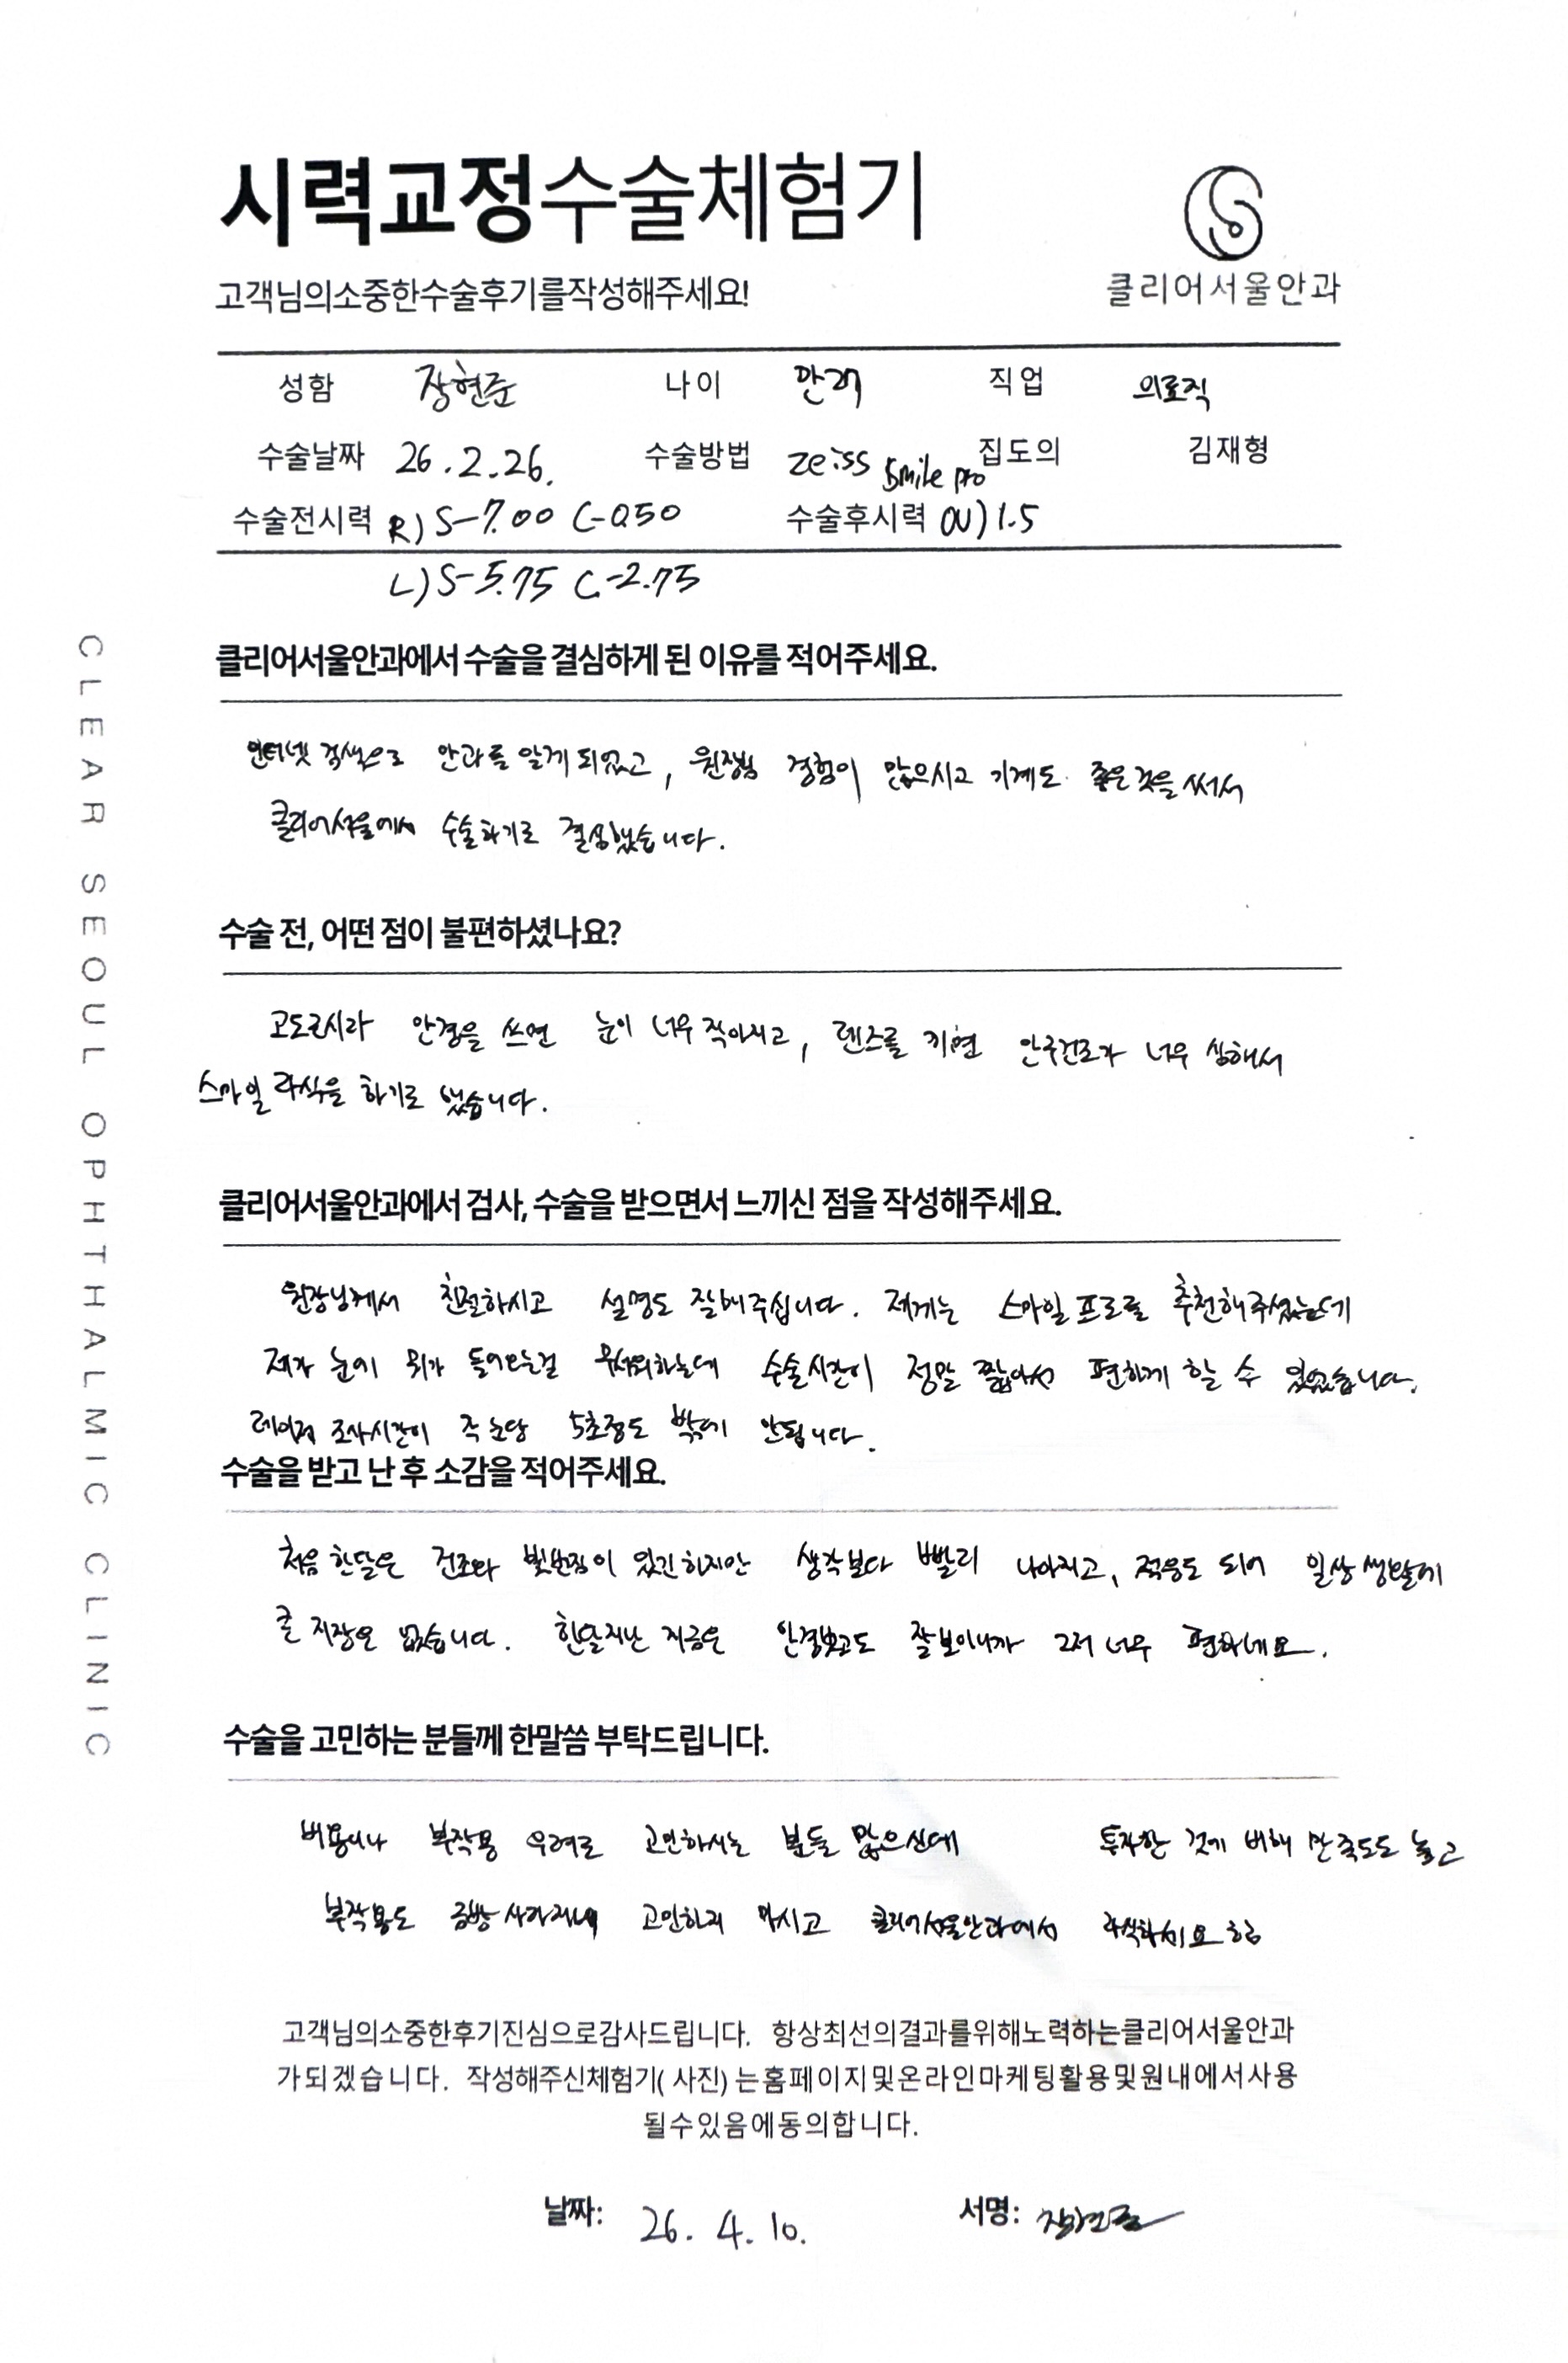 시력교정수술체험기
고객님의소중한수술후기를작성해주세요!
클리어서울안과
성함 장현준 나이 만27 직업 의료직
수술날짜 26.2.26. 수술방법 zeiss smile pro 집도의 김재형
수술전시력 R) S-7.00 C-0.50 수술후시력 OU) 1.5
L) S-5.75 C-2.75
클리어서울안과에서 수술을 결심하게 된 이유를 적어주세요.
인터넷 검색으로 안과를 알게 되었고, 원장님 경험이 많으시고 기계도 좋은것을 써서
클리어서울에서 수술하기로 결심했습니다.
수술 전, 어떤 점이 불편하셨나요?
고도근시라 안경을 쓰면 눈이 너무 작아지고, 렌즈를 끼면 안구건조가 너무 심해서
스마일 라식을 하기로 했습니다.
클리어서울안과에서 검사, 수술을 받으면서 느끼신 점을 작성해주세요.
원장님께서 친절하시고 설명도 잘해주십니다. 저에게는 스마일 프로를 추천해주셨는데
제가 눈에 뭐가 들어오는걸 무서워하는데 수술시간이 정말 짧아서 편하게 할 수 있었습니다.
레이저 조사시간이 각 눈당 5초정도 밖에 안됩니다.
수술을 받고 난 후 소감을 적어주세요.
처음 한달은 건조와 빛번짐이 있긴하지만 생각보다 빨리 나아지고, 적응도 되어 일상생활에
큰 지장은 없습니다. 한달지난 지금은 안경벗고도 잘보이니까 그저 너무 편하네요.
수술을 고민하는 분들께 한말씀 부탁드립니다.
비용이나 부작용 우려로 고민하시는 분들 많으신데 투자한 것에 비해 만족도도 높고
부작용도 금방 사라지니 고민하지 마시고 클리어서울안과에서 라식하세요
고객님의소중한후기진심으로감사드립니다. 항상최선의결과를위해노력하는클리어서울안과
가되겠습니다. 작성해주신체험기( 사진) 는홈페이지및온라인마케팅활용및원내에서사용
될수있음에동의합니다.
날짜: 26. 4. 10. 서명: 장현준
CLEAR SEOUL OPHTHALMIC CLINIC